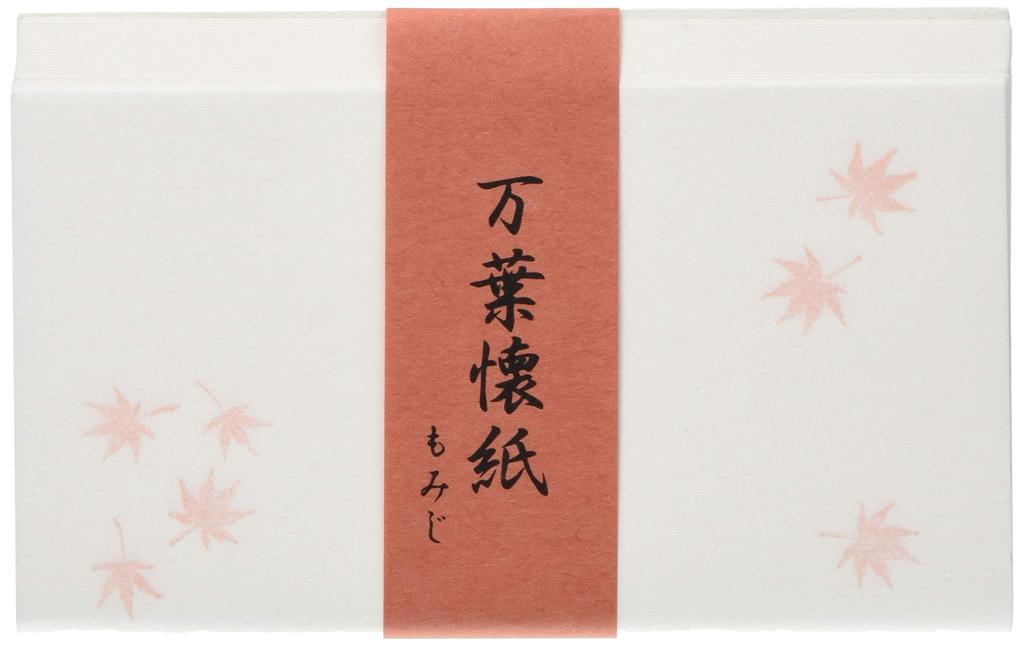 万葉懐紙
もみじ